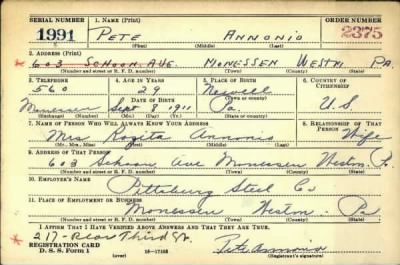 SERIAL NUMBER 1. NAME (Print) ORDER NUMBER
1991 PETE ANNONIO 2375
(First) (Middle) (Last)
2. ADDRESS (Print)
603 SCHOON AVE. MONESSEN WESTM. PA.
(Number and street or R. F. D. number) (Town) (County) (State)
3. TELEPHONE 4. AGE IN YEARS 5. PLACE OF BIRTH 6. COUNTRY OF CITIZENSHIP
560 29 Newell
DATE OF BIRTH (Town or county)
Monessen Sept 8 1911 Pa. U.S.
(Exchange) (Number) (Mo.) (Day) (Yr.) (State or country)
7. NAME OF PERSON WHO WILL ALWAYS KNOW YOUR ADDRESS 8. RELATIONSHIP OF THAT PERSON
Mrs Rosita Annonio Wife
(Mr., Mrs., Miss) (First) (Middle) (Last)
9. ADDRESS OF THAT PERSON
603 Schoon Ave Monessen Westm. Pa
(Number and street or R. F. D. number) (Town) (County) (State)
10. EMPLOYER'S NAME
Pittsburg Steel Co
11. PLACE OF EMPLOYMENT OR BUSINESS
Monessen Westm. Pa
(Number and street or R. F. D. number) (Town) (County) (State)
I AFFIRM THAT I HAVE VERIFIED ABOVE ANSWERS AND THAT THEY ARE TRUE.
217-Rear Third St.
REGISTRATION CARD
D. S. S. Form 1 (over) 16—17105 Pete Annonio
(Registrant's signature)